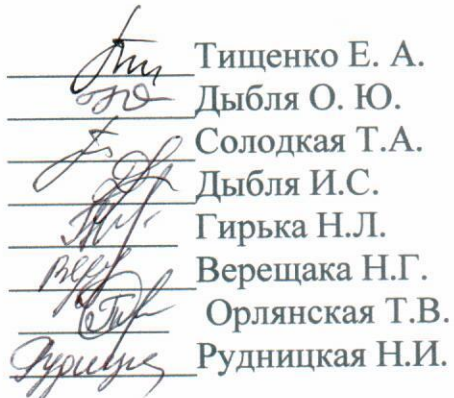 Тищенко Е. А.
Дыбля О. Ю.
Солодкая Т.А.
Дыбля И.С.
Гирька Н.Л.
Верещака Н.Г.
Орлянская Т.В.
Рудницкая Н.И.